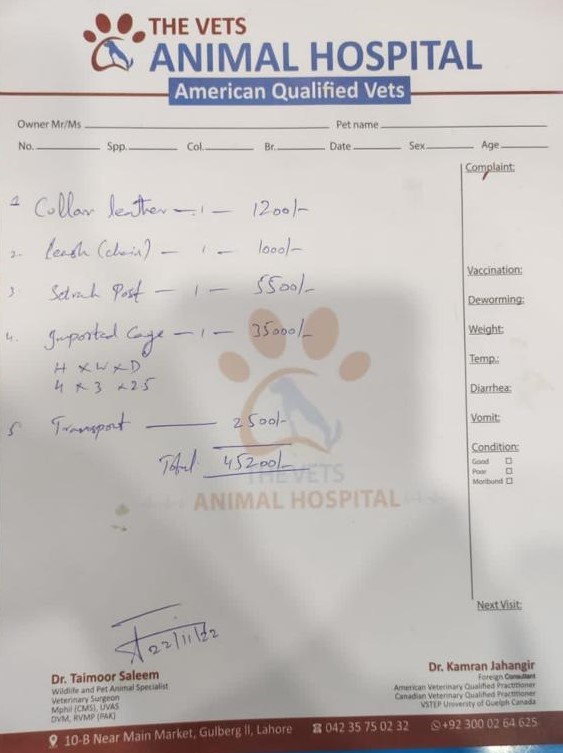 THE VETS
ANIMAL HOSPITAL
American Qualified Vets
Owner Mr/Ms Pet name
No. Spp. Col. Br. Date Sex Age
Complaint:
1 Collar leather - 1 - 1200/-
2- Leash (chain) - 1 - 1000/-
3 Scrach Post - 1 - 5500/-
4. Imported Cage - 1 - 35000/-
H x W x D
4 x 3 x 25
5 Transport 2500/-
Total 45200/-
Vaccination:
Deworming:
Weight:
Temp.:
Diarrhea:
Vomit:
Condition:
Good
Poor
Moribund
THE VETS
ANIMAL HOSPITAL
Next Visit:
22/11/22
Dr. Taimoor Saleem
Wildlife and Pet Animal Specialist
Veterinary Surgeon
Mphil (CMS), UVAS
DVM, RVMP (PAK)
Dr. Kamran Jahangir
Foreign Consultant
American Veterinary Qualified Practitioner
Canadian Veterinary Qualified Practitioner
VSTEP University of Guelph Canada
10-B Near Main Market, Gulberg II, Lahore 042 35 75 02 32 +92 300 02 64 625